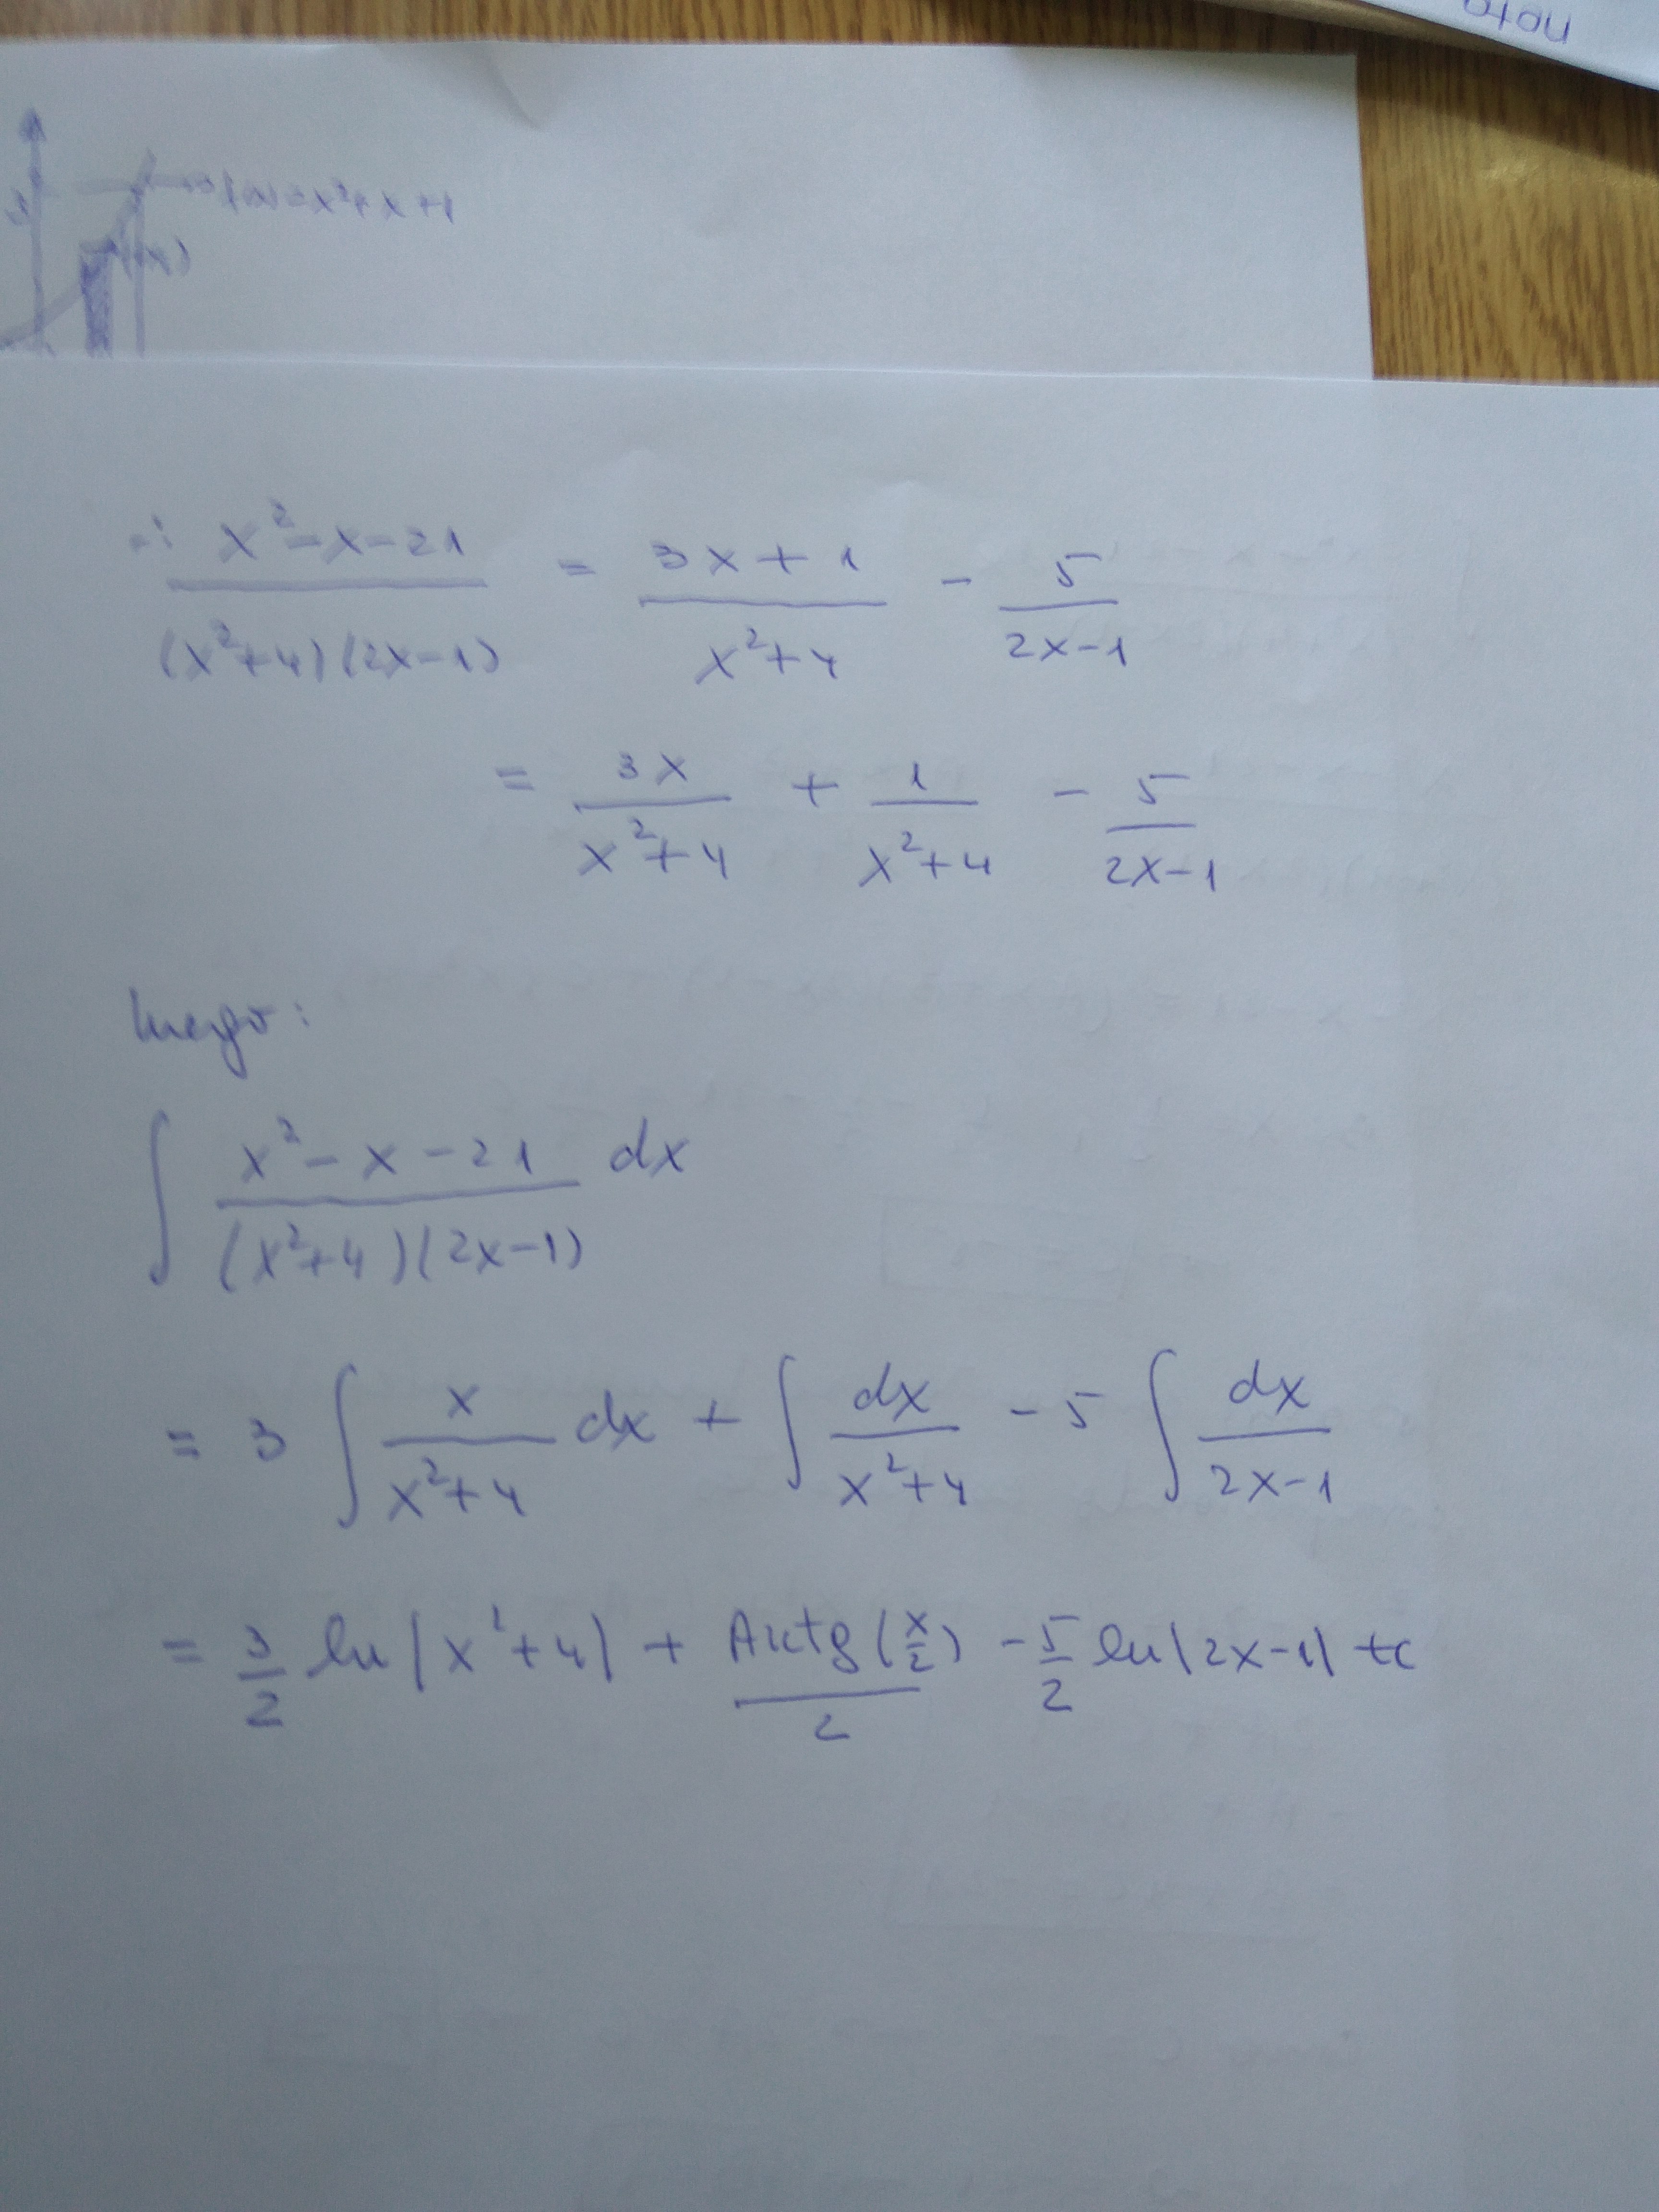 noton
f(x) = x²+x+1
∴ x²-x-21 / (x²+4)(2x-1) = 3x+1 / x²+4 - 5 / 2x-1
= 3x / x²+4 + 1 / x²+4 - 5 / 2x-1
luego:
∫ x²-x-21 / (x²+4)(2x-1) dx
= 3 ∫ x / x²+4 dx + ∫ dx / x²+4 - 5 ∫ dx / 2x-1
= 3/2 ln|x²+4| + Arctg(x/2) / 2 - 5/2 ln|2x-1| + c